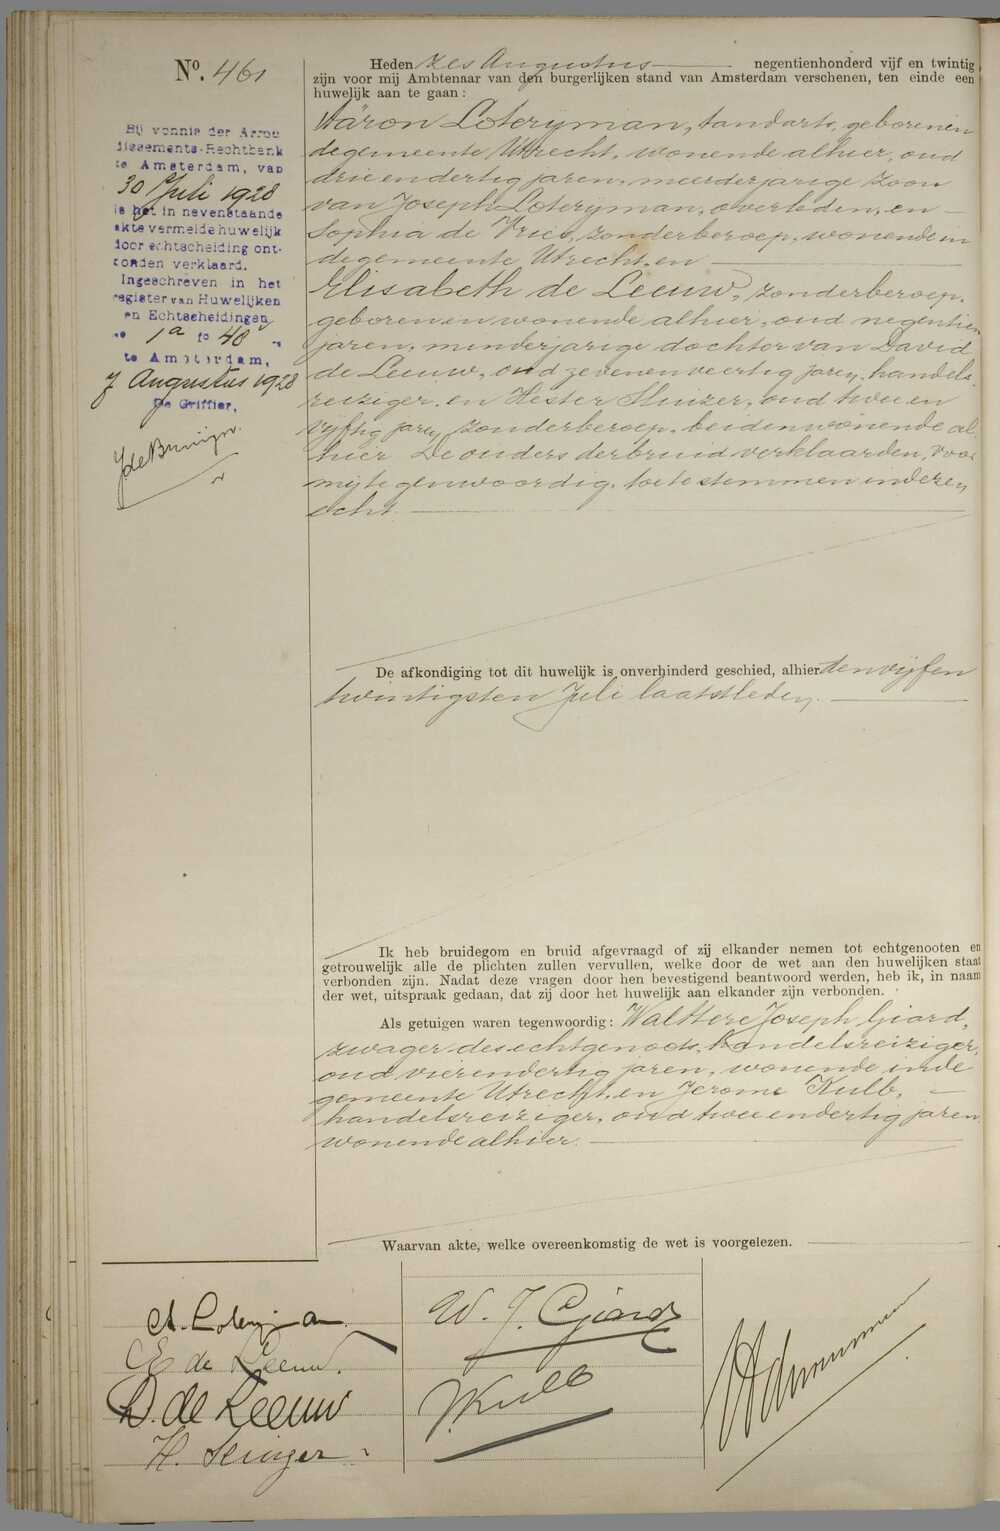 Nº. 461
Bij vonnis der Arron
dissements-Rechtbank
te Amsterdam, van
30 Juli 1928
is het in nevenstaande
akte vermelde huwelijk
door echtscheiding ont-
bonden verklaard.
Ingeschreven in het
register van Huwelijken
en Echtscheidingen
1a fo 40
te Amsterdam,
7 Augustus 1928
De Griffier,
JdeBruijn.
Heden zes Augustus negentienhonderd vijf en twintig
zijn voor mij Ambtenaar van den burgerlijken stand van Amsterdam verschenen, ten einde een
huwelijk aan te gaan:
Aäron Loterijman, tandarts, geboren in
de gemeente Utrecht, wonende alhier, oud
drie en dertig jaren, meerderjarige zoon
van Joseph Loterijman, overleden, en
Sophia de Vries, zonder beroep, wonende in
de gemeente Utrecht, en
Elisabeth de Leeuw, zonder beroep,
geboren en wonende alhier, oud negentien
jaren, minderjarige dochter van David
de Leeuw, oud zeven en veertig jaren, handels-
reiziger, en Hester Sluizer, oud twee en
vijftig jaren, zonder beroep, beiden wonende al-
hier. De ouders der bruid verklaarden, voor
mij tegenwoordig, toe te stemmen in dezen
echt.
De afkondiging tot dit huwelijk is onverhinderd geschied, alhier den vijf en
twintigsten Juli laatstleden.
Ik heb bruidegom en bruid afgevraagd of zij elkander nemen tot echtgenooten en
getrouwelijk alle de plichten zullen vervullen, welke door de wet aan den huwelijken staat
verbonden zijn. Nadat deze vragen door hen bevestigend beantwoord werden, heb ik, in naam
der wet, uitspraak gedaan, dat zij door het huwelijk aan elkander zijn verbonden.
Als getuigen waren tegenwoordig: Walthere Joseph Giard,
zwager des echtgenoots, handelsreiziger,
oud vier en dertig jaren, wonende in de
gemeente Utrecht, en Jerome Kulb,
handelsreiziger, oud twee en dertig jaren
wonende alhier.
Waarvan akte, welke overeenkomstig de wet is voorgelezen.
A. Loterijman.
E de Leeuw.
D. de Leeuw
H. Sluizer
W. J. Giard
J. Kulb